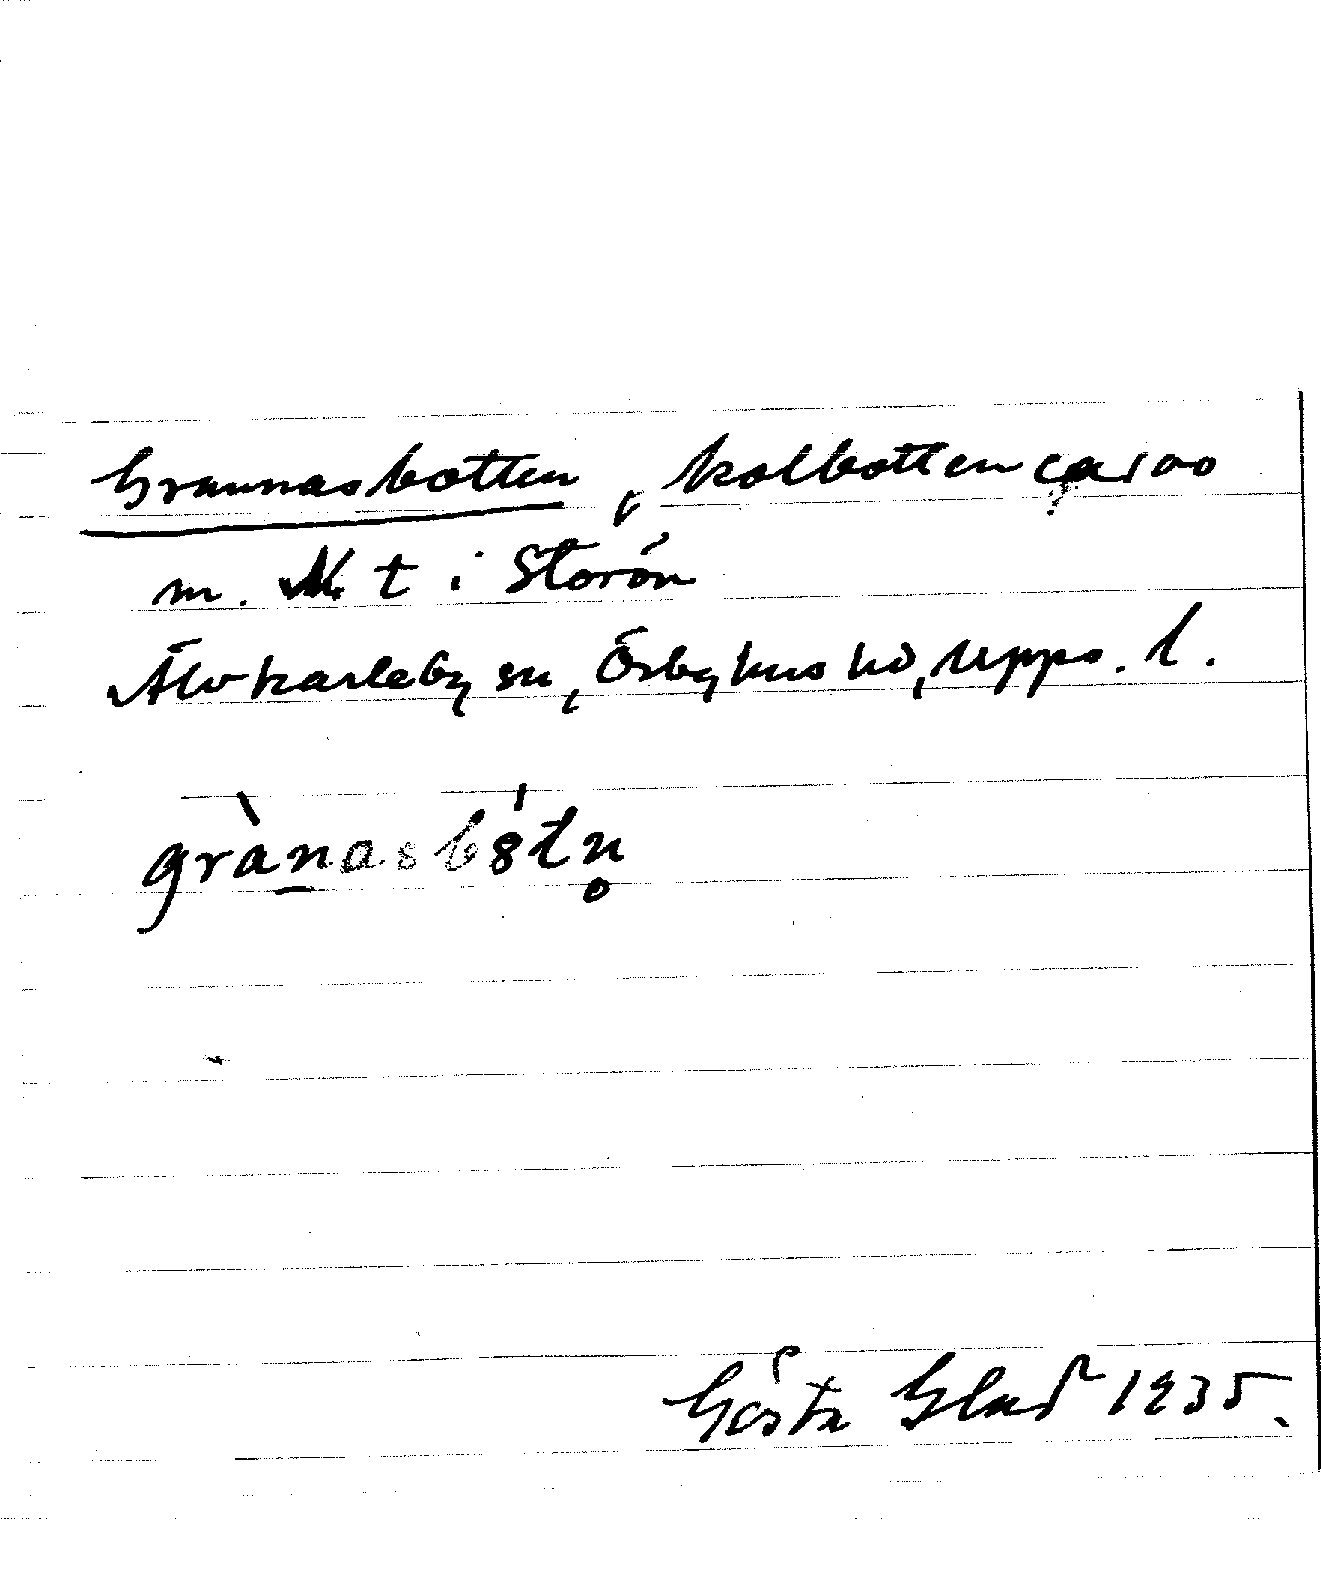 Grannasbotten, kolbotten ca 100
m. N t i Storön
Älvkarleby sn, Örbyhus hd, Upps. l.
grànasbó̀tn̥
Gösta Glad 1935.